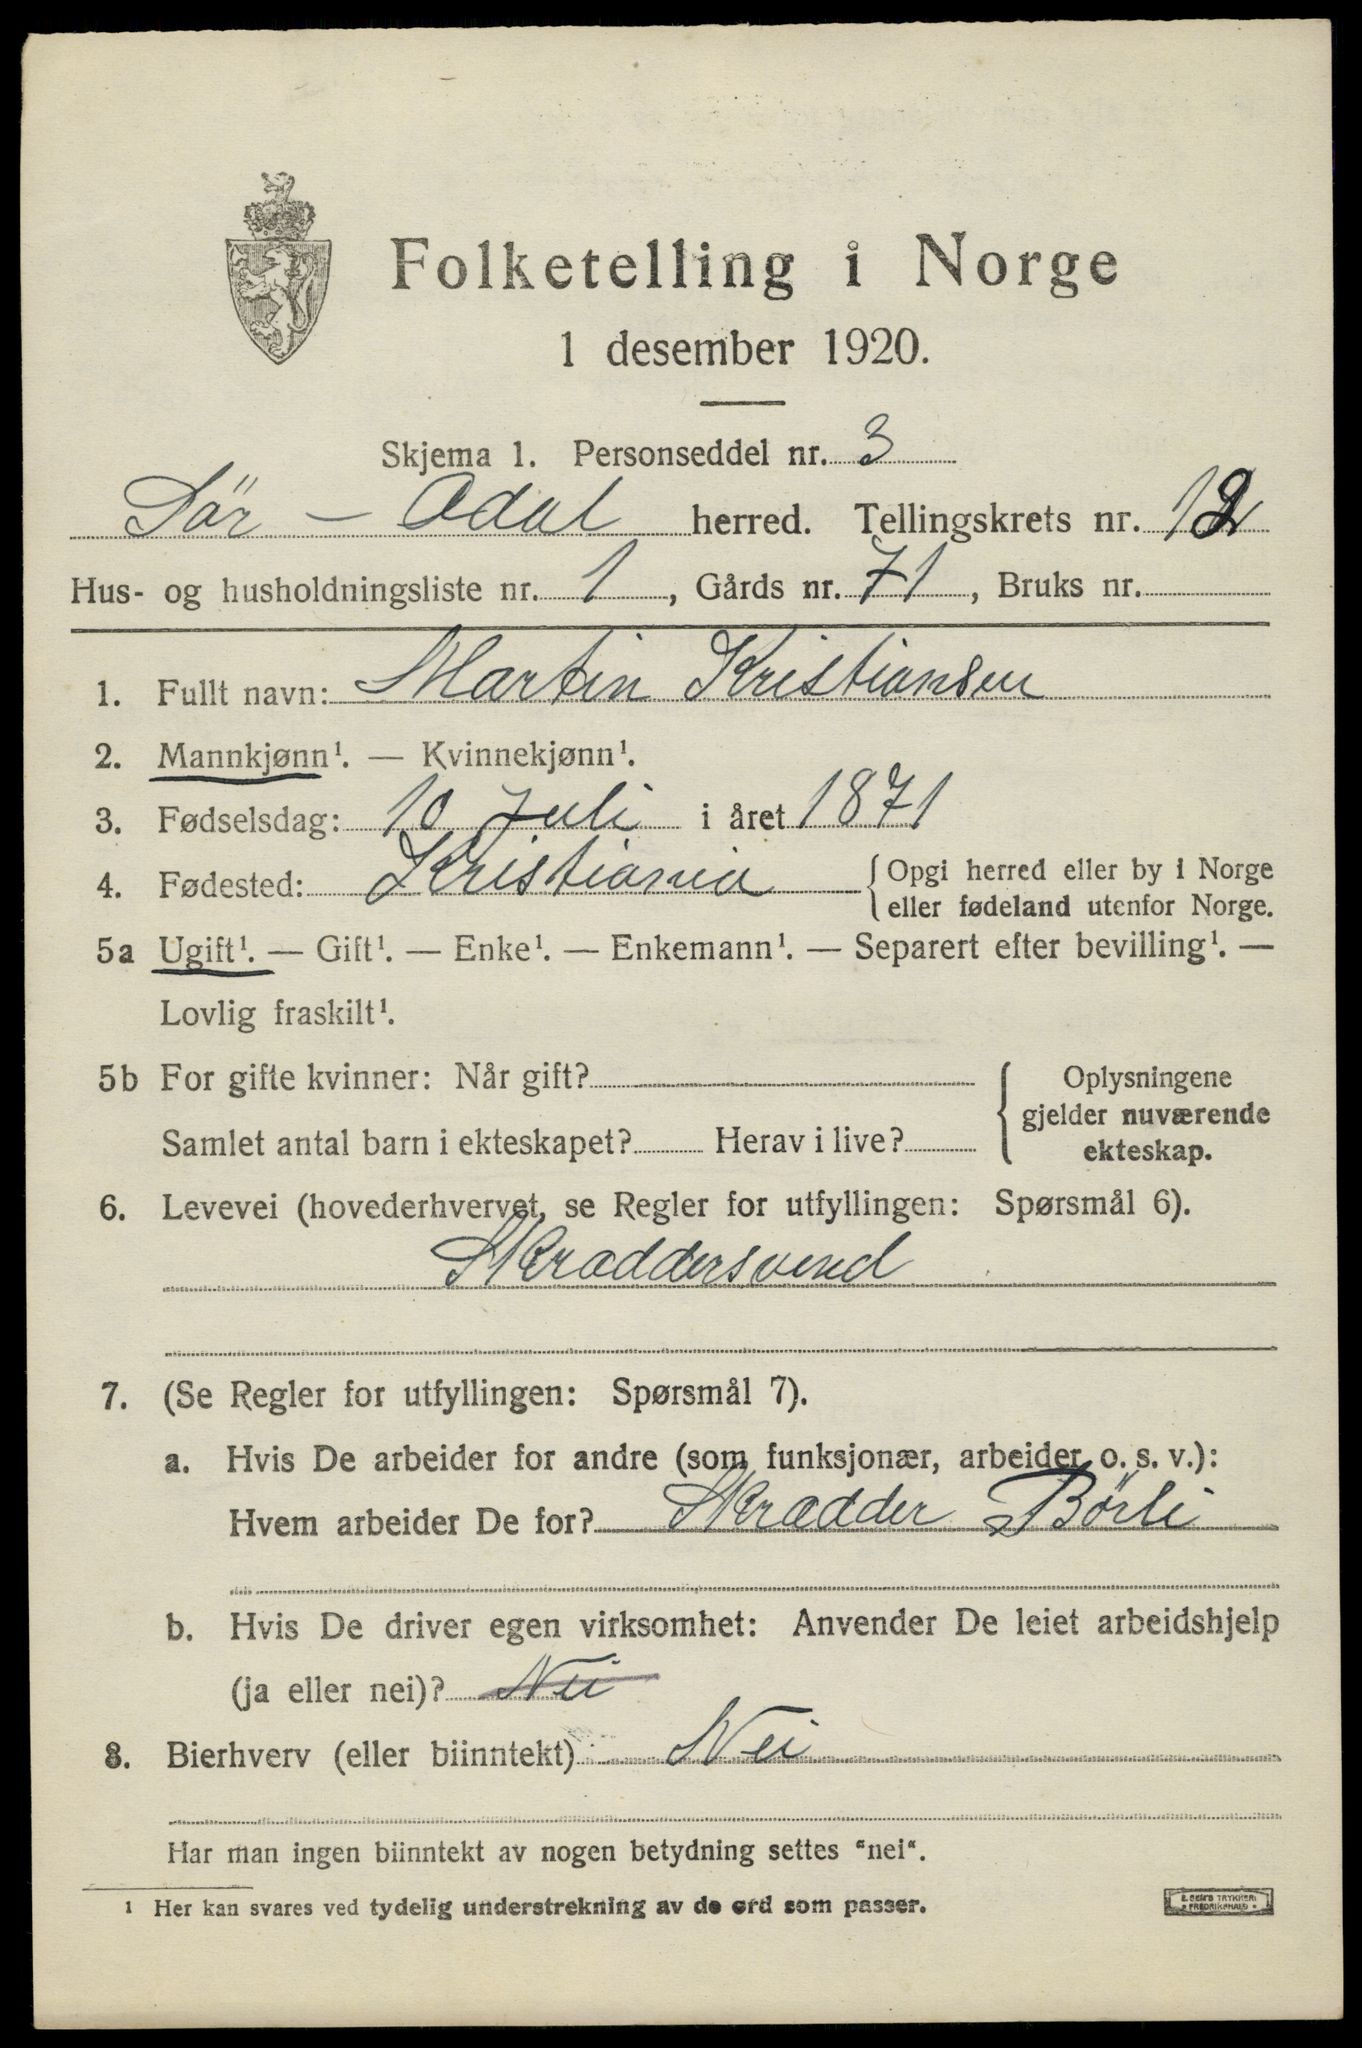 Folketelling i Norge
1 desember 1920.
Skjema 1. Personseddel nr. 3
Sör - Odal herred. Tellingskrets nr. 12
Hus- og husholdningsliste nr. 1, Gårds nr. 71, Bruks nr.
1. Fullt navn: Martin Kristiansen
2. Mannkjønn¹. — Kvinnekjønn¹.
3. Fødselsdag: 10 Juli i året 1871
4. Fødested: Kristiania { Opgi herred eller by i Norge
eller fødeland utenfor Norge.
5a Ugift¹. — Gift¹. — Enke¹. — Enkemann¹. — Separert efter bevilling¹. —
Lovlig fraskilt¹.
5b For gifte kvinner: Når gift? { Oplysningene
gjelder nuværende
Samlet antal barn i ekteskapet? Herav i live? ekteskap.
6. Levevei (hovederhvervet, se Regler for utfyllingen: Spørsmål 6).
Skræddersvend
7. (Se Regler for utfyllingen: Spørsmål 7).
a. Hvis De arbeider for andre (som funksjonær, arbeider o. s. v.):
Hvem arbeider De for? Skrædder Börli
b. Hvis De driver egen virksomhet: Anvender De leiet arbeidshjelp
(ja eller nei)? Nei
8. Bierhverv (eller biinntekt) Nei
Har man ingen biinntekt av nogen betydning settes "nei".
1 Her kan svares ved tydelig understrekning av de ord som passer.
E. SEM'S TRYKKERI
FREDRIKSHALD